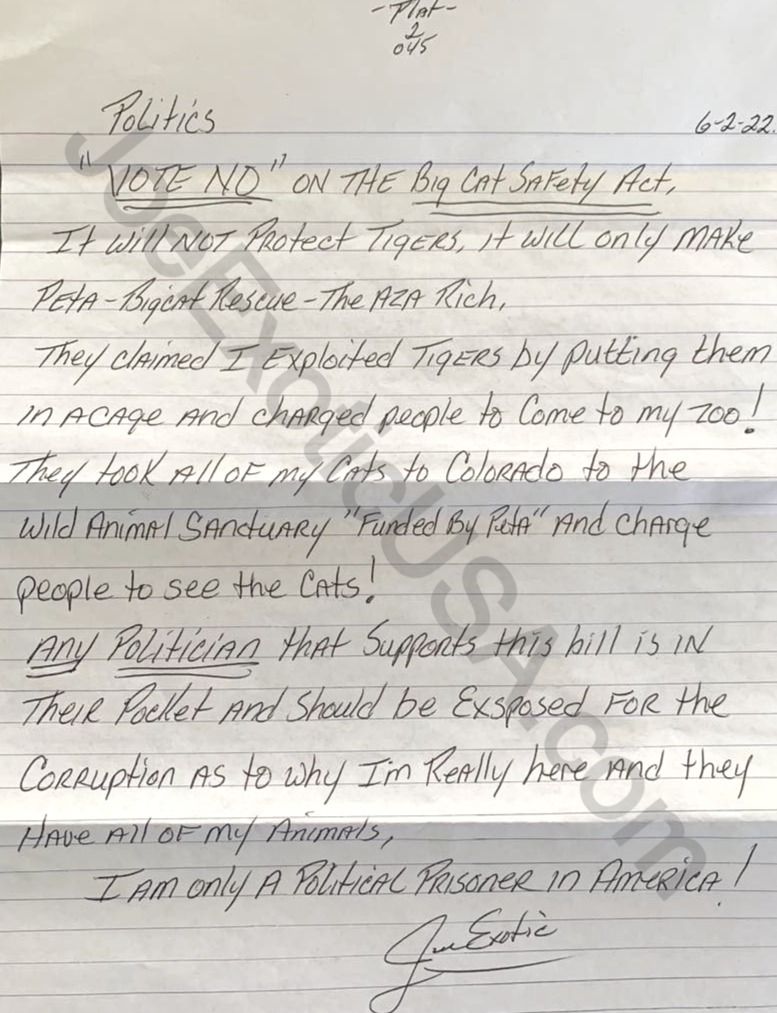 - Plat -
2
045
Politics 6-2-22.
"VOTE NO" ON THE Big CAT SAFety Act,
It will NOT Protect TIGERS, it will only MAKe
PetA-Bigcat Rescue-The AZA Rich,
They claimed I Exploited TIGERS by putting them
in A CAge AND chARged people to Come to my zoo!
They took All OF my CAts to ColoRADo to the
Wild ANimAl SANctuARy "Funded By PetA" AND chARge
people to see the CAts!
Any Politician thAt Supports this bill is IN
TheiR Pocket AND Should be Exsposed FOR the
CoRRuption AS to why I'm ReAlly here AND they
HAve All OF my ANimAls,
I AM only A PoliticAL PRisoNeR in AmeRicA!
Joe Exotic
JoeExoticUSA.com